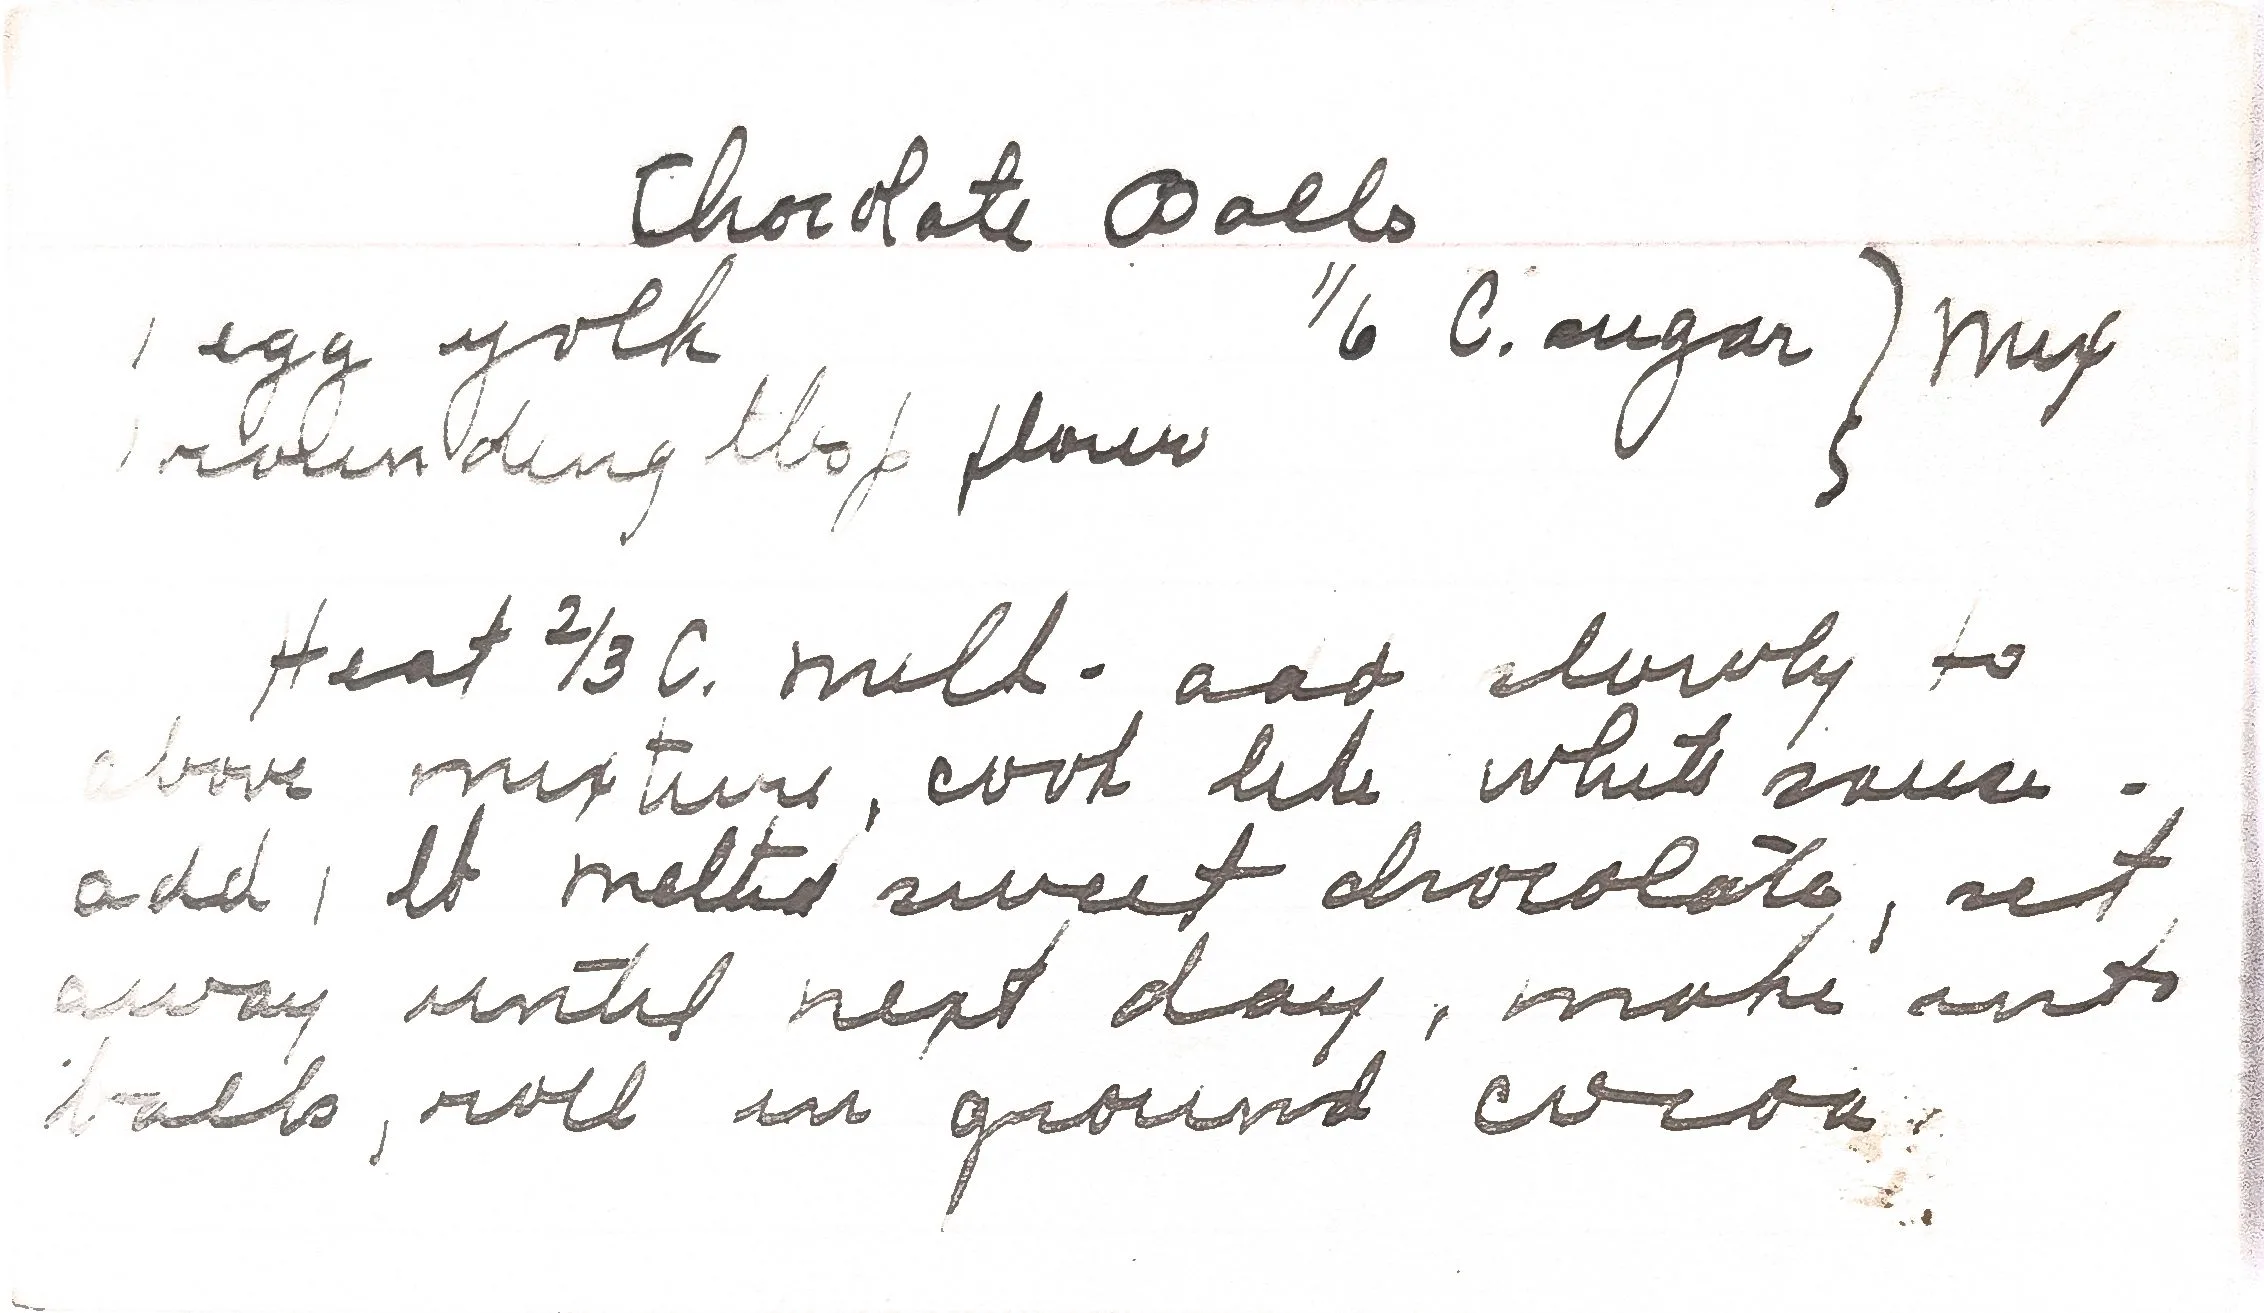 Chocolate Balls
1 egg yolk 1/6 C. sugar } Mix
1 rounding tbsp flour
Heat 2/3 C. milk - add slowly to
above mixture, cook like white sauce -
add 1 lb melted sweet chocolate, set
away until next day, make into
balls, roll in ground cocoa.